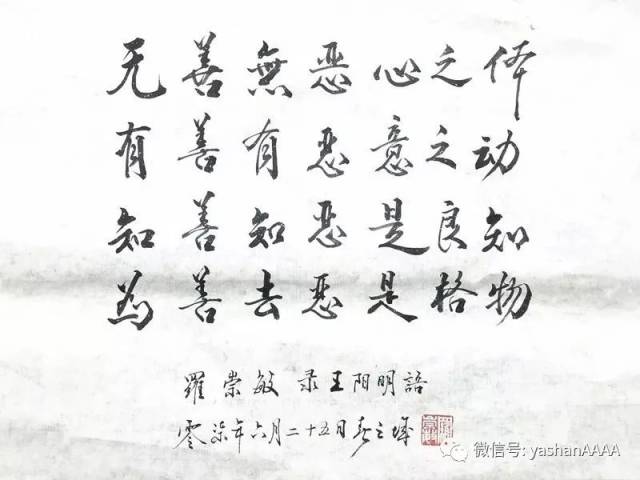 无善無恶心之体
有善有恶意之动
知善知恶是良知
为善去恶是格物
羅崇敏录王阳明語
零柒年六月二十五日春之城
微信号: yashanAAAA